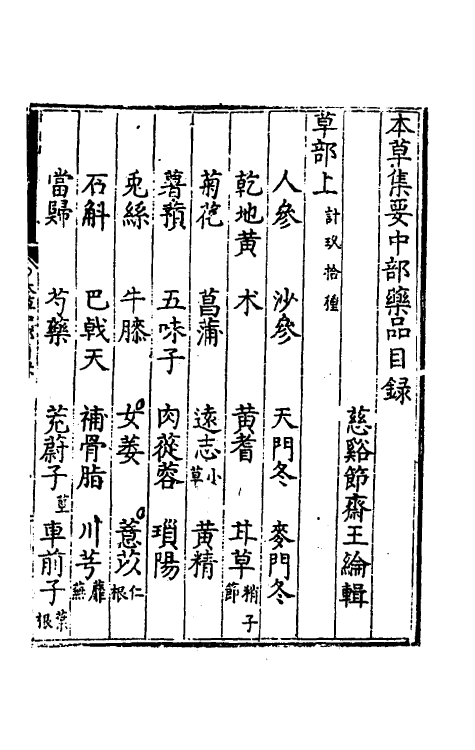 本草集要中部藥品目録
慈谿節齋王綸輯
草部上 計玖拾種
人參 沙參 天門冬 麥門冬
乾地黄 术 黄耆 甘草 稍子節
菊花 菖蒲 遠志 小草 黄精
薯蕷 五味子 肉蓯蓉 瑣陽
兎絲 牛膝 女萎 薏苡 仁根
石斛 巴戟天 補骨脂 川芎 蘼蕪
當歸 芍藥 茺蔚子 莖 車前子 葉根